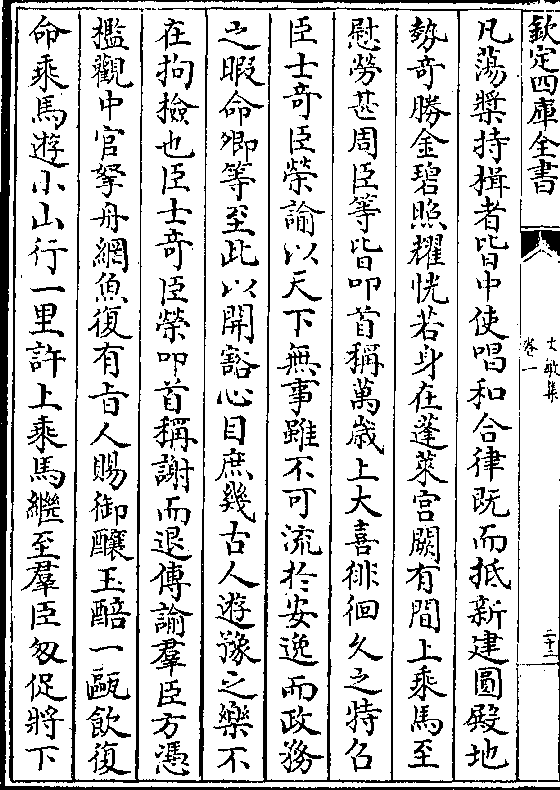 欽定四庫全書
文敏集
卷一
二十三
凡蕩槳持楫者皆中使唱和合律既而抵新建圓殿地
勢奇勝金碧照耀恍若身在蓬萊宮闕有間上乘馬至
慰勞甚周臣等皆叩首稱萬歲上大喜徘徊久之特召
臣士奇臣榮諭以天下無事雖不可流於安逸而政務
之暇命卿等至此以開豁心目庶幾古人遊豫之樂不
在拘撿也臣士奇臣榮叩首稱謝而退傳諭羣臣方憑
檻觀中官拏舟網魚復有㫖人賜御釀玉醅一甌飲復
命乘馬遊小山行一里許上乘馬繼至羣臣匆促將下